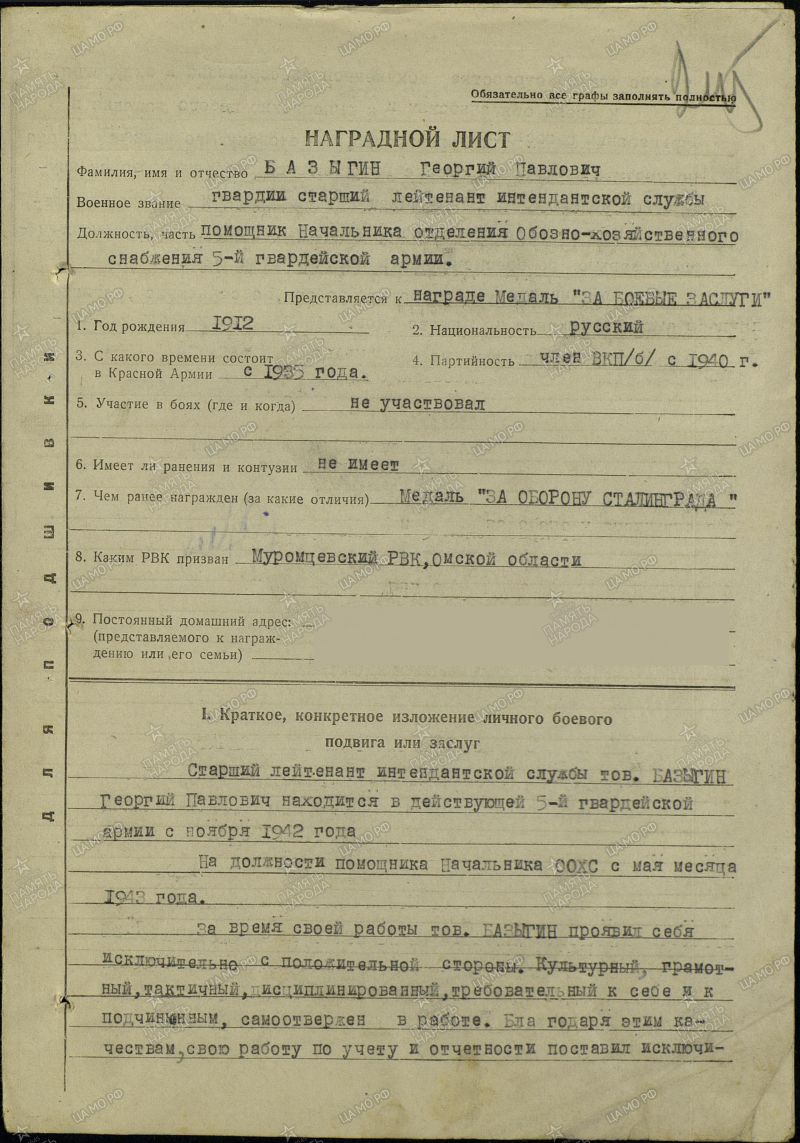 Обязательно все графы заполнять полностью
НАГРАДНОЙ ЛИСТ
Фамилия, имя и отчество БАЗЫГИН Георгий Павлович
Военное звание гвардии старший лейтенант интендантской службы
Должность, часть помощник Начальника отделения Обозно-хозяйственного
снабжения 5-й гвардейской армии.
Представляется к награде Медаль "ЗА БОЕВЫЕ ЗАСЛУГИ"
1. Год рождения 1912 2. Национальность русский
3. С какого времени состоит
в Красной Армии с 1935 года. 4. Партийность член ВКП/б/ с 1940 г.
5. Участие в боях (где и когда) не участвовал
6. Имеет ли ранения и контузии не имеет
7. Чем ранее награжден (за какие отличия) Медаль "ЗА ОБОРОНУ СТАЛИНГРАДА "
8. Каким РВК призван Муромцевский РВК, Омской области
9. Постоянный домашний адрес:
(представляемого к награж-
дению или его семьи)
I. Краткое, конкретное изложение личного боевого
подвига или заслуг
Старший лейтенант интендантской службы тов. БАЗЫГИН
Георгий Павлович находится в действующей 5-й гвардейской
армии с ноября 1942 года
На должности помощника Начальника ООХС с мая месяца
1943 года.
За время своей работы тов. БАЗЫГИН проявил себя
исключительно с положительной стороны. Культурный, грамот-
ный, тактичный, дисциплинированный, требовательный к себе и к
подчиненным, самоотвержен в работе. Бла годаря этим ка-
чествам, свою работу по учету и отчетности поставил исключи-
для подшивки
ПАМЯТЬ НАРОДА
ЦАМО.РФ